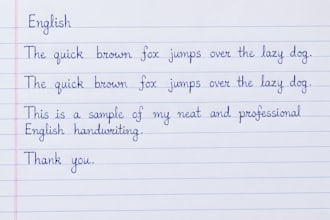 English
The quick brown fox jumps over the lazy dog.
The quick brown fox jumps over the lazy dog.
This is a sample of my neat and professional
English handwriting.
Thank you.